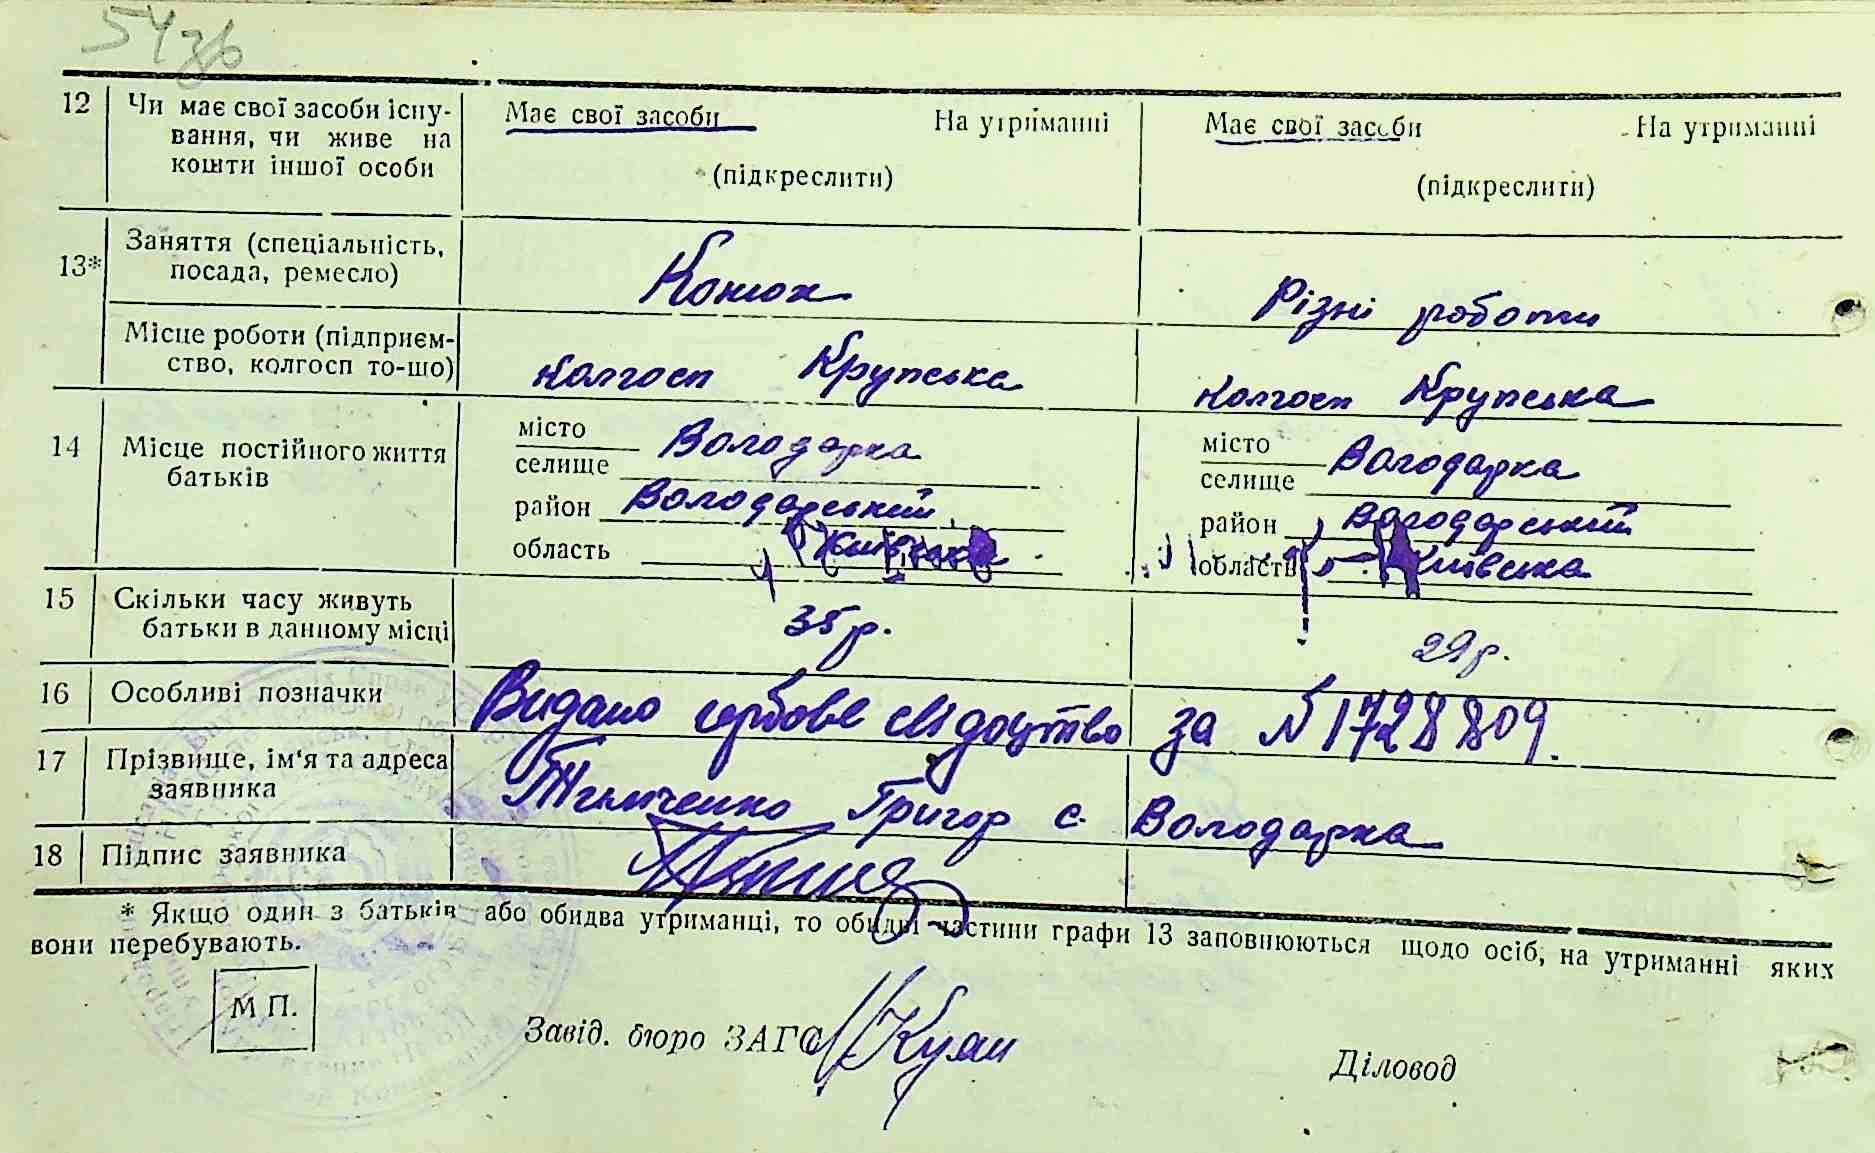 54зв
12 Чи має свої засоби існу-
вання, чи живе на
кошти іншої особи
Має свої засоби На утриманні
(підкреслити)
Має свої засоби На утриманні
(підкреслити)
13* Заняття (спеціальність,
посада, ремесло)
Конюх
Різні роботи
Місце роботи (підприєм-
ство, колгосп то-що)
колгосп Крупська
колгосп Крупська
14 Місце постійного життя
батьків
місто
селище Володарка
район Володарський
область Київська
місто
селище Володарка
район Володарський
область Київська
15 Скільки часу живуть
батьки в данному місці
35 р.
29 р.
16 Особливі позначки
Видано гербове свідоцтво за № 1728809.
17 Прізвище, ім'я та адреса
заявника
Григор с. Володарка
18 Підпис заявника
* Якщо один з батьків або обидва утриманці, то обидві частини графи 13 заповнюються щодо осіб, на утриманні яких
вони перебувають.
М П.
Завід. бюро ЗАГС
Діловод